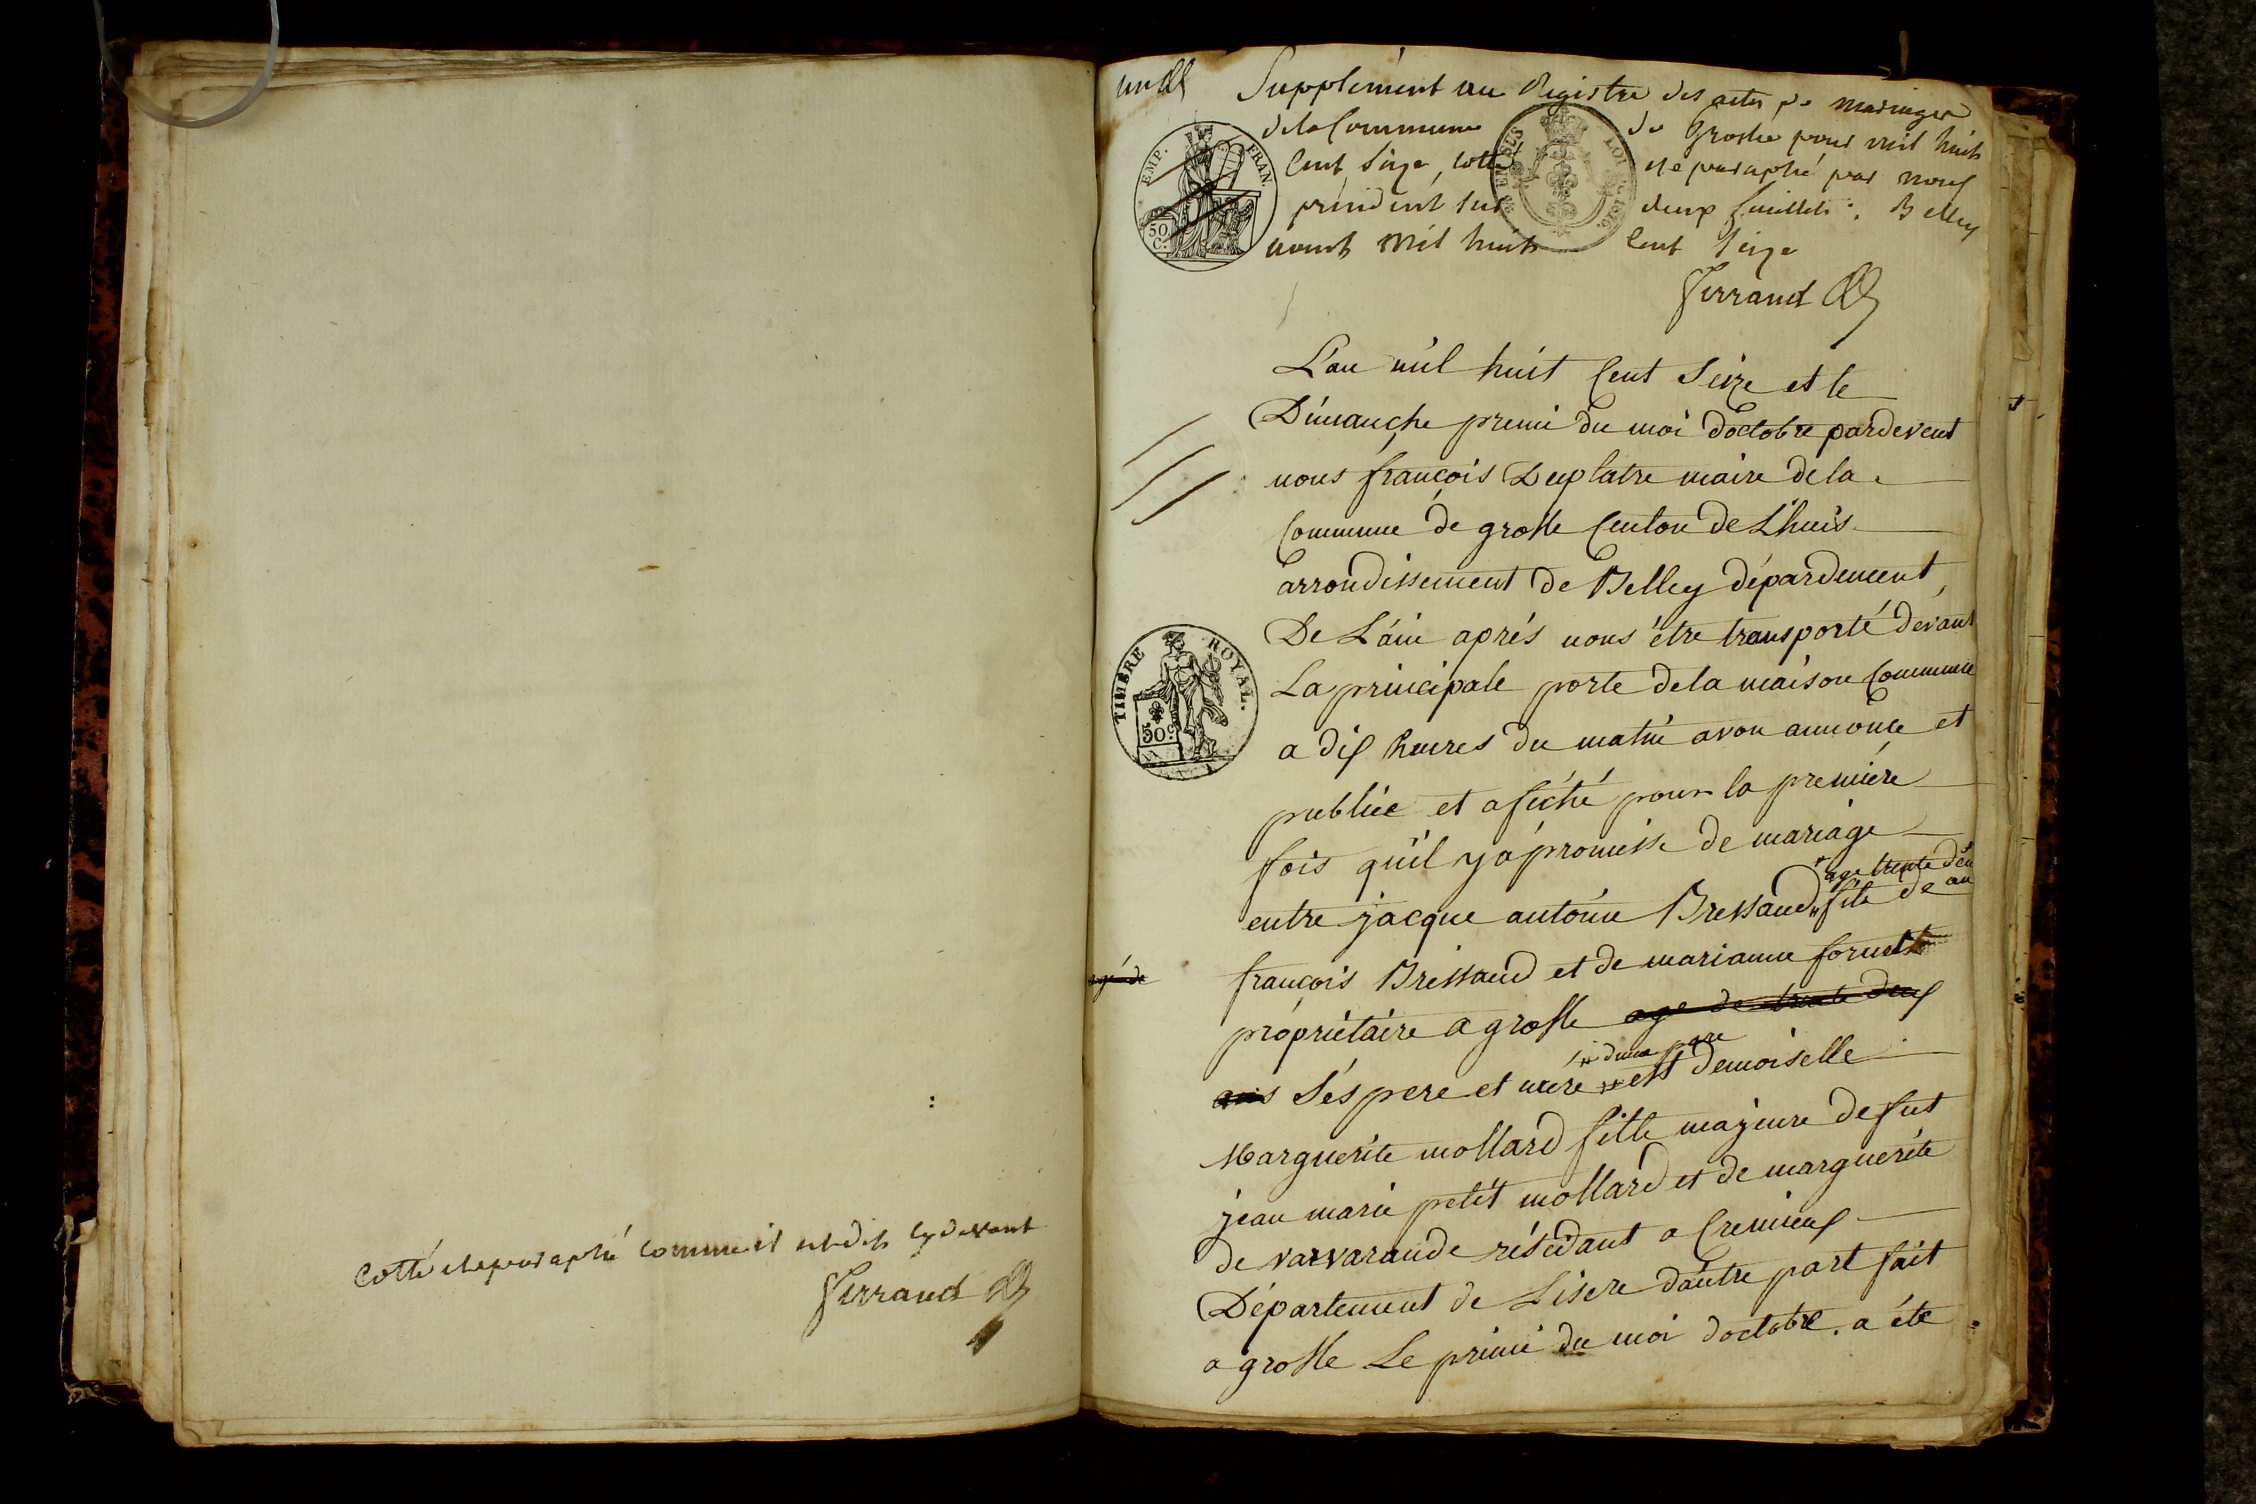 Cotté et paraphé comme il est dit cy devant
Ferrand
un
Supplément au Registre des actes de mariages
de la Commune de Groslée pour mil huit
Cent Seize, cotté et paraphé par nous
président sur deux feuillets. Belley
mil huit Cent Seize
Ferrand
EMP. FRAN.
50 C.
EN SUS
LOI DE 1816.
L'an mil huit Cent Seize et le
Dimanche premié du moi doctobre pardevent
nous françois Duplatre maire de la
Commune de grosle Canton de Lhuis
arrondissement de Belley départdement
De L'ain aprés nous étre transporté devant
La principale porte de la maison Commune
a dix heures du matin avon annonce et
publiée et afiché pour la premiére
fois qu'il y a promisse de mariage
* age trente deu an
entre jacque antoine Bressaud * fils de
françois Bressaud et de marianne fornet
agé de
propriétaire a grosle age de trente deux
ans Sés pere et mére ** est demoiselle
** dune pare
Marguerite mollard fille majeure de fut
jean marie petit mollard et de marguerite
de varvarande résidant a Cremieux
Département de Lisere dautre part fait
a grosle Le primié du moi doctobre. a été
TIMBRE ROYAL.
50 c.